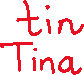 tin
Tina